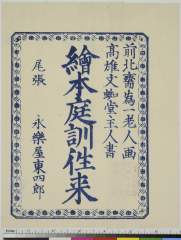 前北齋為一老人画
高雄文蝌堂主人書
繪本庭訓徃来
尾張　永樂屋東四郎